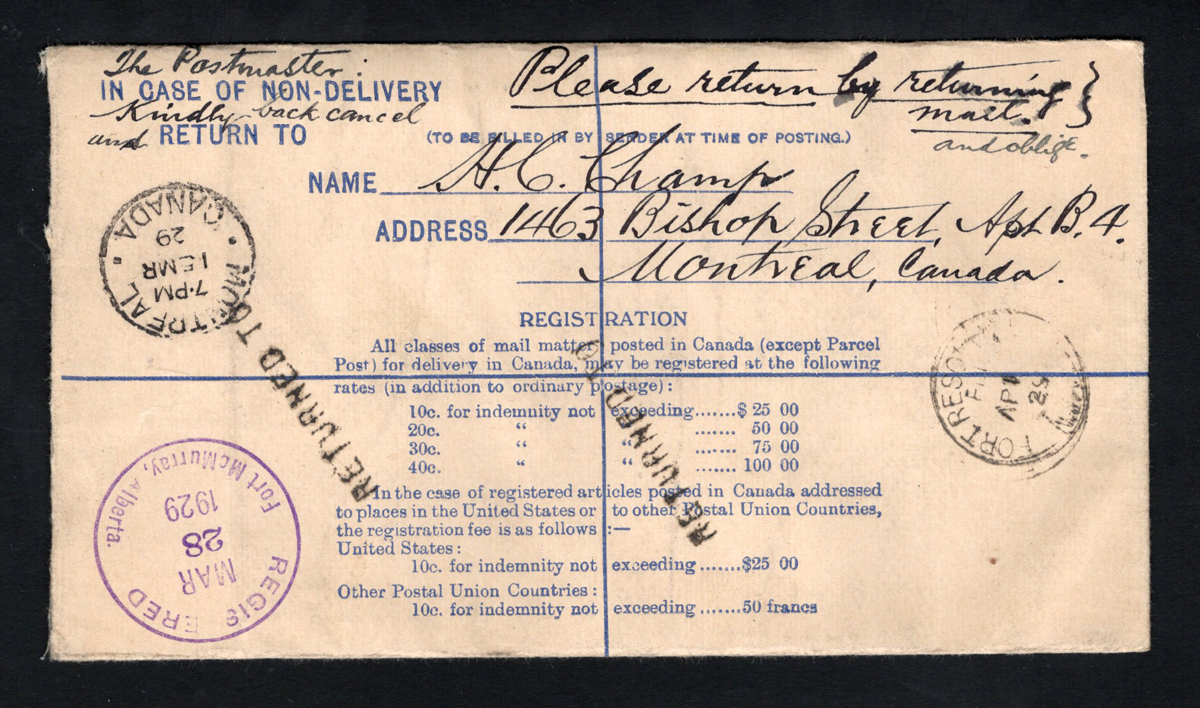 The Postmaster:
Please return by returning
IN CASE OF NON-DELIVERY
Kindly back cancel
mail.
and RETURN TO
(TO BE FILLED IN BY SENDER AT TIME OF POSTING.)
and oblige.
NAME H. C. Champ
ADDRESS 1463 Bishop Street, Apt B. 4.
Montreal, Canada.
MONTREAL
CANADA
7-PM
15 MR
29
REGISTRATION
All classes of mail matter posted in Canada (except Parcel
Post) for delivery in Canada, may be registered at the following
rates (in addition to ordinary postage):
10c. for indemnity not exceeding.......$ 25 00
20c. “ “ ....... 50 00
30c. “ “ ....... 75 00
40c. “ “ ....... 100 00
RETURNED TO
RETURNED TO
FORT RESO
AP 1
29
In the case of registered articles posted in Canada addressed
to places in the United States or to other Postal Union Countries,
the registration fee is as follows :—
United States :
10c. for indemnity not exceeding.......$25 00
Other Postal Union Countries :
10c. for indemnity not exceeding.......50 francs
REGISTERED
MAR
28
1929
Fort McMurray, Alberta.